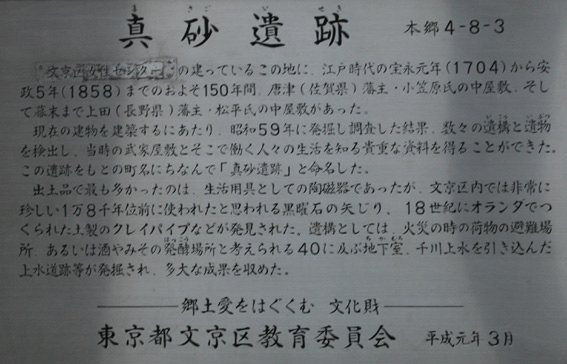 真砂遺跡
まさごいせき
本郷4-8-3
文京区女性センターの建っているこの地に、江戸時代の宝永元年(1704)から安
政5年(1858)までのおよそ150年間、唐津(佐賀県)藩主・小笠原氏の中屋敷、そし
て幕末まで上田(長野県)藩主・松平氏の中屋敷があった。
現在の建物を建築するにあたり、昭和59年に発掘し調査した結果、数々の遺構と遺物
を検出し、当時の武家屋敷とそこで働く人々の生活を知る貴重な資料を得ることができた。
この遺跡をもとの町名にちなんで「真砂遺跡」と命名した。
出土品で最も多かったのは、生活用具としての陶磁器であったが、文京区内では非常に
珍しい1万8千年位前に使われたと思われる黒曜石の矢じり、18世紀にオランダでつ
くられた土製のクレイパイプなどが発見された。遺構としては、火災の時の荷物の避難場
所、あるいは酒やみその発酵場所と考えられる40に及ぶ地下室、千川上水を引き込んだ
上水道跡等が発掘され、多大な成果を収めた。
郷土愛をはぐくむ 文化財
東京都文京区教育委員会 平成元年3月